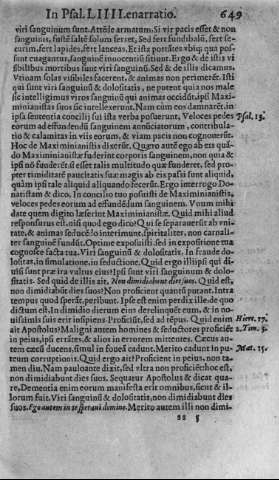 In Psal. LIIII. enarratio. 649
viri sanguinum sunt. Attende armatum. Si vir pacis esset & non
sanguinis, fustẽ saltẽ solum ferret. Sed fert fundibalũ, fert se-
curim, fert lapides, fert lanceas. Et ista portãtes vbiq; qua pos-
sunt euagantur, sanguinẽ innocentũ sitiunt. Ergo & de istis vi
sibilibus mortibus sunt viri sanguinũ. Sed & de illis dicamus,
Vtinam solas visibiles facerent, & animas non perimerẽt. Isti
qui sunt viri sanguinũ & dolositatis, ne putent quia nos male
sic intelligimus viros sanguinũ qui animas occidũt, ipsi Maxi-
mianistas suos sic intellexerunt. Nam cum eos damnarẽt, in
ipsa sententia concilij sui ista verba posuerunt, Veloces pedes Psal. 13.
eorum ad effundendũ sanguinem annũciatorum, contribula-
tio & calamitas in viis eorum, & viam pacis non cognouerũt.
Hoc de Maximianistis dixerũt. Quæro autẽ ego ab eis quã-
do Maximianistæ fuderint corporis sanguinem, non quia &
ipsi nõ funderẽt si esset talis multitudo quæ funderet, sed pro-
pter timiditatẽ paucitatis suæ magis ab eis passi sunt aliquid,
quàm ipsi tale aliquid aliquando fecerũt. Ergo interrogo Do-
natistam & dico, In concilio tuo posuisti de Maximianistis,
veloces pedes eorum ad effundẽdum sanguinem. Vnum mihi
da quem digito læserint Maximianistæ. Quid mihi aliud
responsurus est, nisi quod ego dico? Qui se separauerũt ab vni-
tate, & animas seducẽdo interimunt, spiritaliter, non carnali-
ter sanguinẽ fundũt. Optime exposuisti, sed in expositione tua
cognosce facta tua. Viri sanguinũ & dolositatis. In fraude do-
lositas, in simulatione, in seductione. Quid ergo illi ipsi qui di-
uisi sunt præ ira vultus eius? Ipsi sunt viri sanguinum & dolo-
sitatis. Sed quid de illis ait. Non dimidiabunt dies suos. Quid est,
non dimidiabũt dies suos? Non proficient quantũ putant. Intra
tempus quod sperãt, peribunt. Ipse est enim perdix ille de quo
dictum est. In dimidio dierum eius derelinquẽt eum, & in no-
uissimis suis erit insipiens. Proficiũt, sed ad tẽpus. Quid enim Hiere. 17.
ait Apostolus? Maligni autem homines & seductores proficiẽt 2. Tim. 3.
in peius, ipsi errãtes, & alios in errorem mittentes. Cæcus au-
tem cæcũ ducens, simul in foueã cadunt. Merito cadunt in pu- Mat. 15.
teum corruptionis. Quid ergo ait? Proficient in peius, non ta-
men diu. Nam pauloante dixit, sed vltra non proficiẽt hoc est,
non dimidiabunt dies suos. Sequatur Apostolus & dicat qua-
re, Dementia enim eorum manifesta erit omnibus, sicut & il-
lorum fuit. Viri sanguinũ & dolositatis, non dimidiabunt dies
suos. Ego autem in te sperani domine. Merito autem illi non dimi-